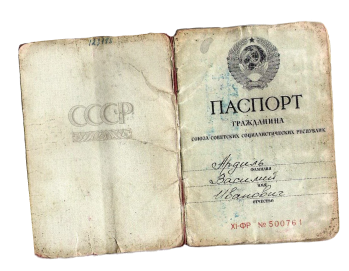 СССР
ПАСПОРТ
ГРАЖДАНИНА
СОЮЗА СОВЕТСКИХ СОЦИАЛИСТИЧЕСКИХ РЕСПУБЛИК
Ардиль
ФАМИЛИЯ
Василий
ИМЯ
Иванович
ОТЧЕСТВО
XI-ФР № 500761